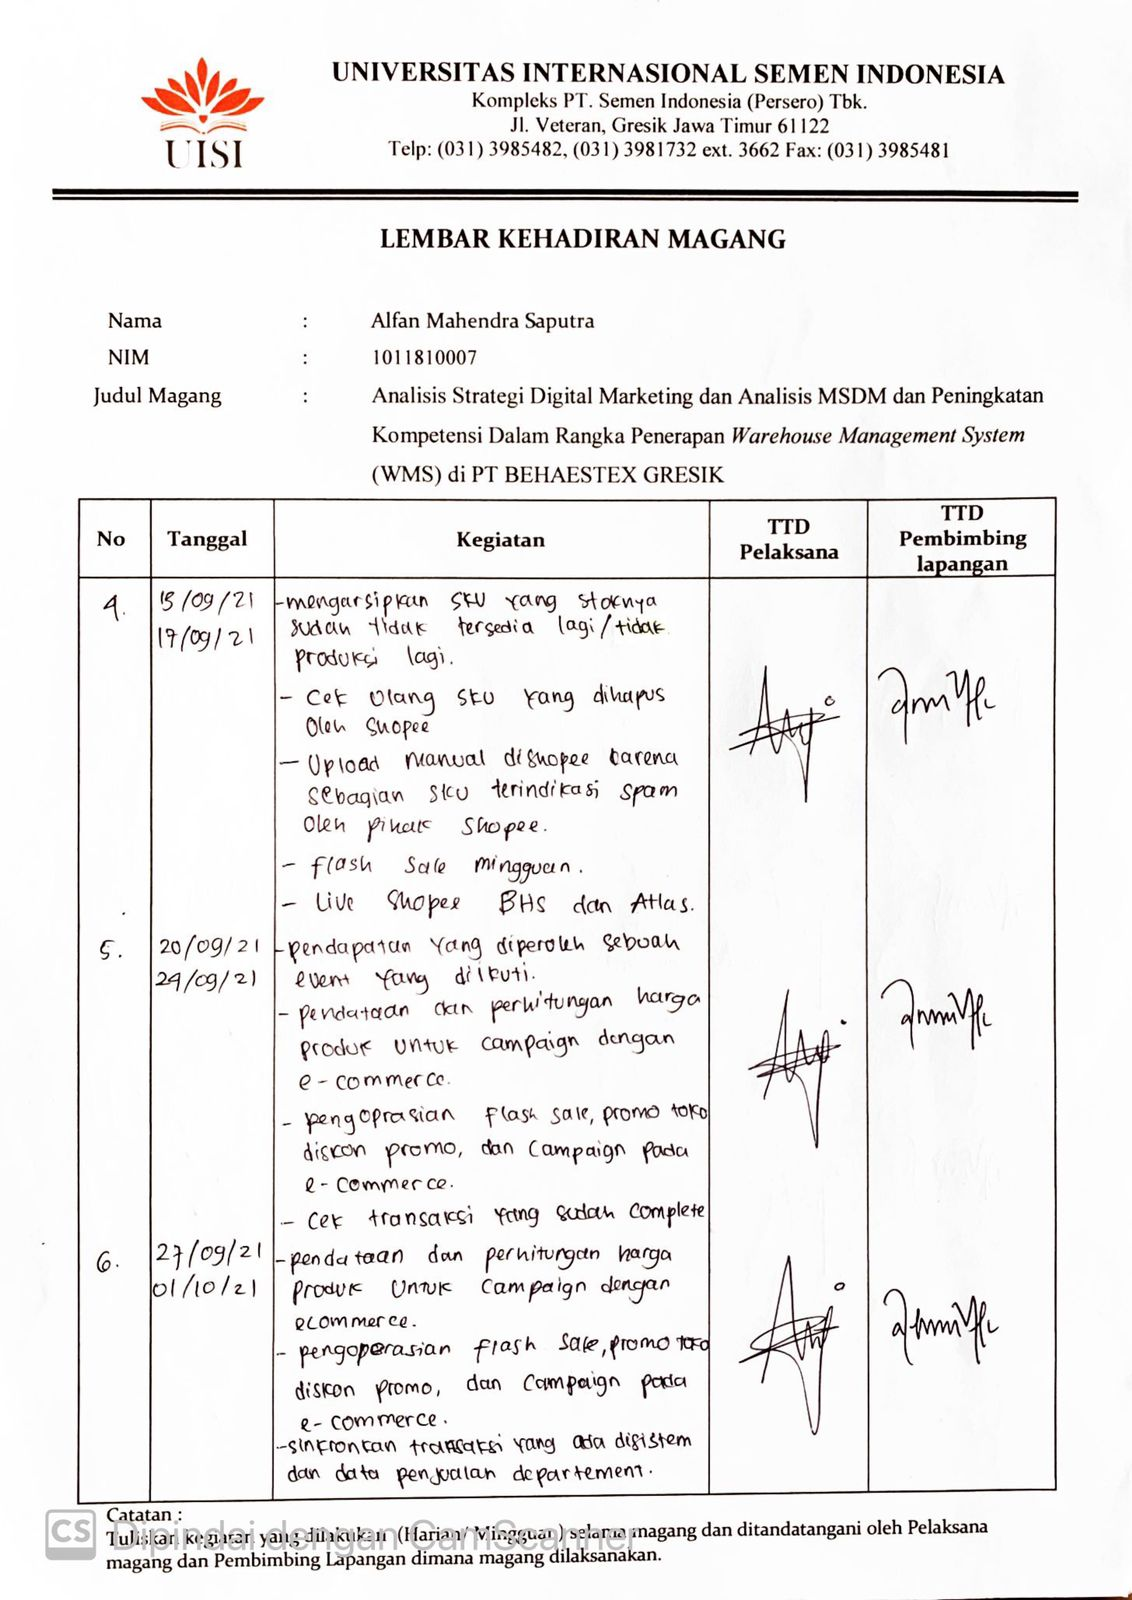 UISI
UNIVERSITAS INTERNASIONAL SEMEN INDONESIA
Kompleks PT. Semen Indonesia (Persero) Tbk.
Jl. Veteran, Gresik Jawa Timur 61122
Telp: (031) 3985482, (031) 3981732 ext. 3662 Fax: (031) 3985481
LEMBAR KEHADIRAN MAGANG
Nama : Alfan Mahendra Saputra
NIM : 1011810007
Judul Magang : Analisis Strategi Digital Marketing dan Analisis MSDM dan Peningkatan
Kompetensi Dalam Rangka Penerapan Warehouse Management System
(WMS) di PT BEHAESTEX GRESIK
No Tanggal Kegiatan TTD Pelaksana TTD Pembimbing lapangan
4. 15/09/21 - mengarsipkan SKU yang stoknya
17/09/21 sudah tidak tersedia lagi/tidak
produksi lagi.
- Cek Ulang SKU yang dihapus
Oleh Shopee
- Upload manual dishopee karena
sebagian SKU terindikasi spam
oleh pihak Shopee.
- flash Sale mingguan.
- Live Shopee BHS dan Atlas.
5. 20/09/21 - pendapatan yang diperoleh sebuah
24/09/21 event yang diikuti.
- pendataan dan perhitungan harga
produk untuk campaign dengan
e-commerce.
- pengoprasian flash sale, promo toko
diskon promo, dan Campaign pada
e-commerce.
- Cek transaksi yang sudah complete
6. 27/09/21 - pendataan dan perhitungan harga
01/10/21 produk untuk campaign dengan
ecommerce.
- pengoperasian flash sale, promo toko
diskon promo, dan Campaign pada
e-commerce.
- sinkronkan transaksi yang ada disistem
dan data penjualan departement.
Catatan :
Tuliskan kegiatan yang dilakukan (Harian/ Mingguan) selama magang dan ditandatangani oleh Pelaksana
magang dan Pembimbing Lapangan dimana magang dilaksanakan.
CS Dipindai dengan CamScanner